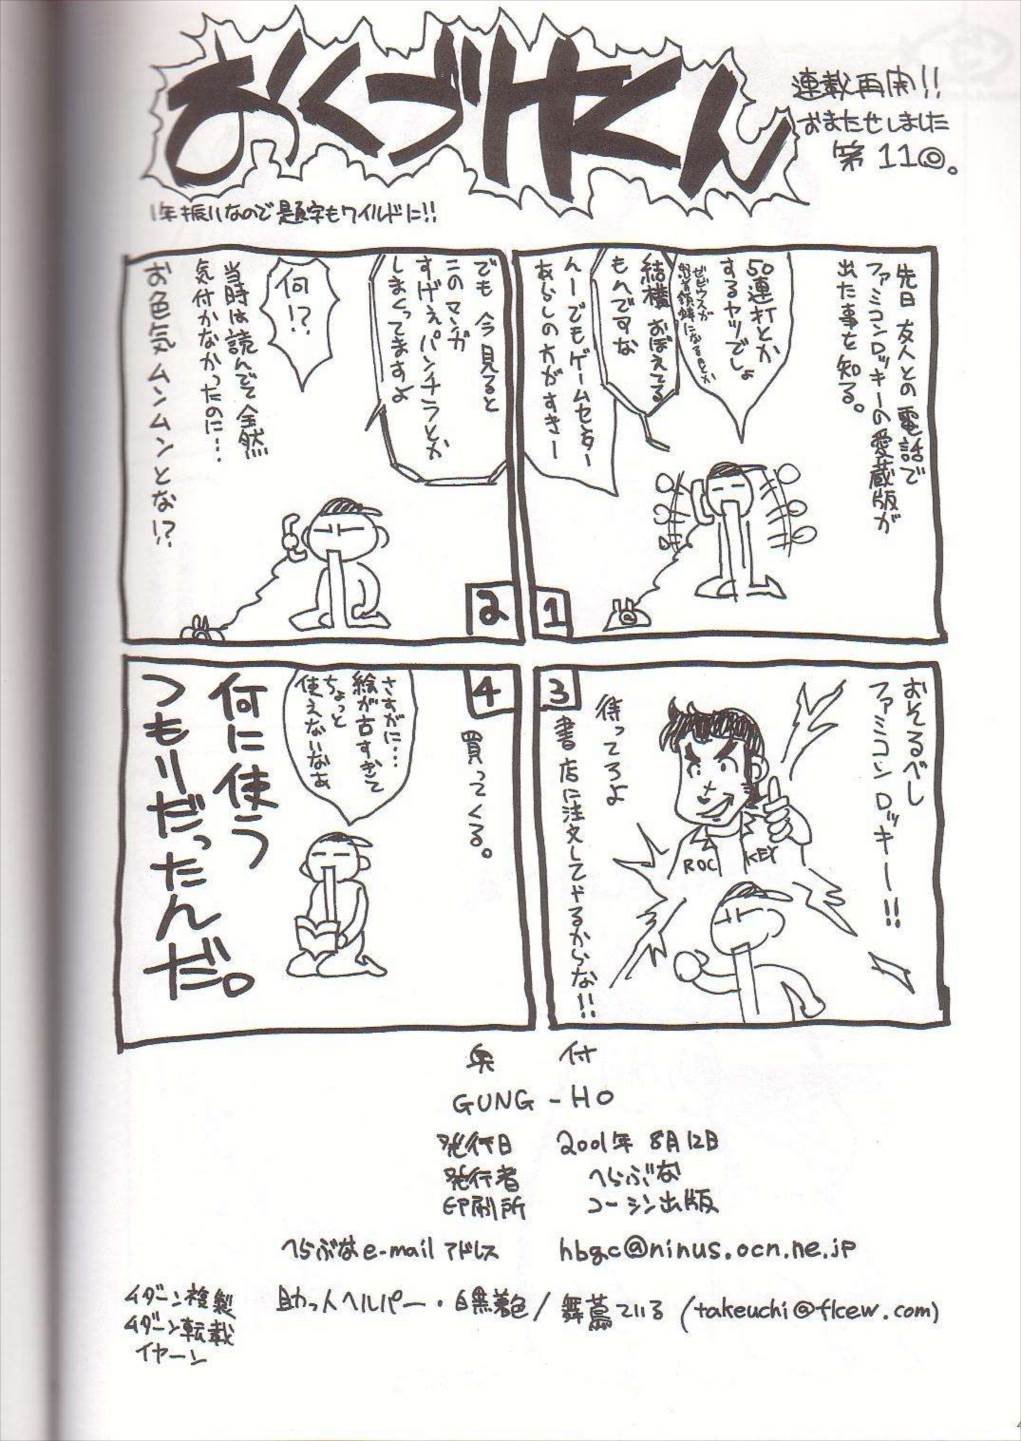 おくづけくん
連載再開!!
おまたせしました
第11回。
1年振りなので題字もワイルドに!!
先日 友人との電話で
ファミコンロッキーの愛蔵版が
出た事を知る。
50連打とか
するヤツでしょ
ゼビウスが
結構 おぼえてる
もんですな
んーでもゲームセンター
あらしの方がすきー
1
でも 今見ると
このマンガ
すげぇパンチラとか
しまくってますよ
何!?
当時は読んでて全然
気付かなかったのに…
お色気ムンムンとな!?
2
おそるべし
ファミコンロッキー!!
ROC KEY
待ってろよ
書店に注文してやるからな!!
3
買ってくる。
さすがに…
絵が古すぎて
ちょっと
使えないなあ
何に使う
つもりだったんだ。
4
奥付
GUNG-HO
発行日 2001年 8月12日
発行者 へらぶな
印刷所 コーシン出版
へらぶなe-mailアドレス hbgc@ninus.ocn.ne.jp
助っ人ヘルパー・白黒着色/舞蔦ている (takeuchi@flcew.com)
ムダーン複製
ムダーン転載
イヤーン